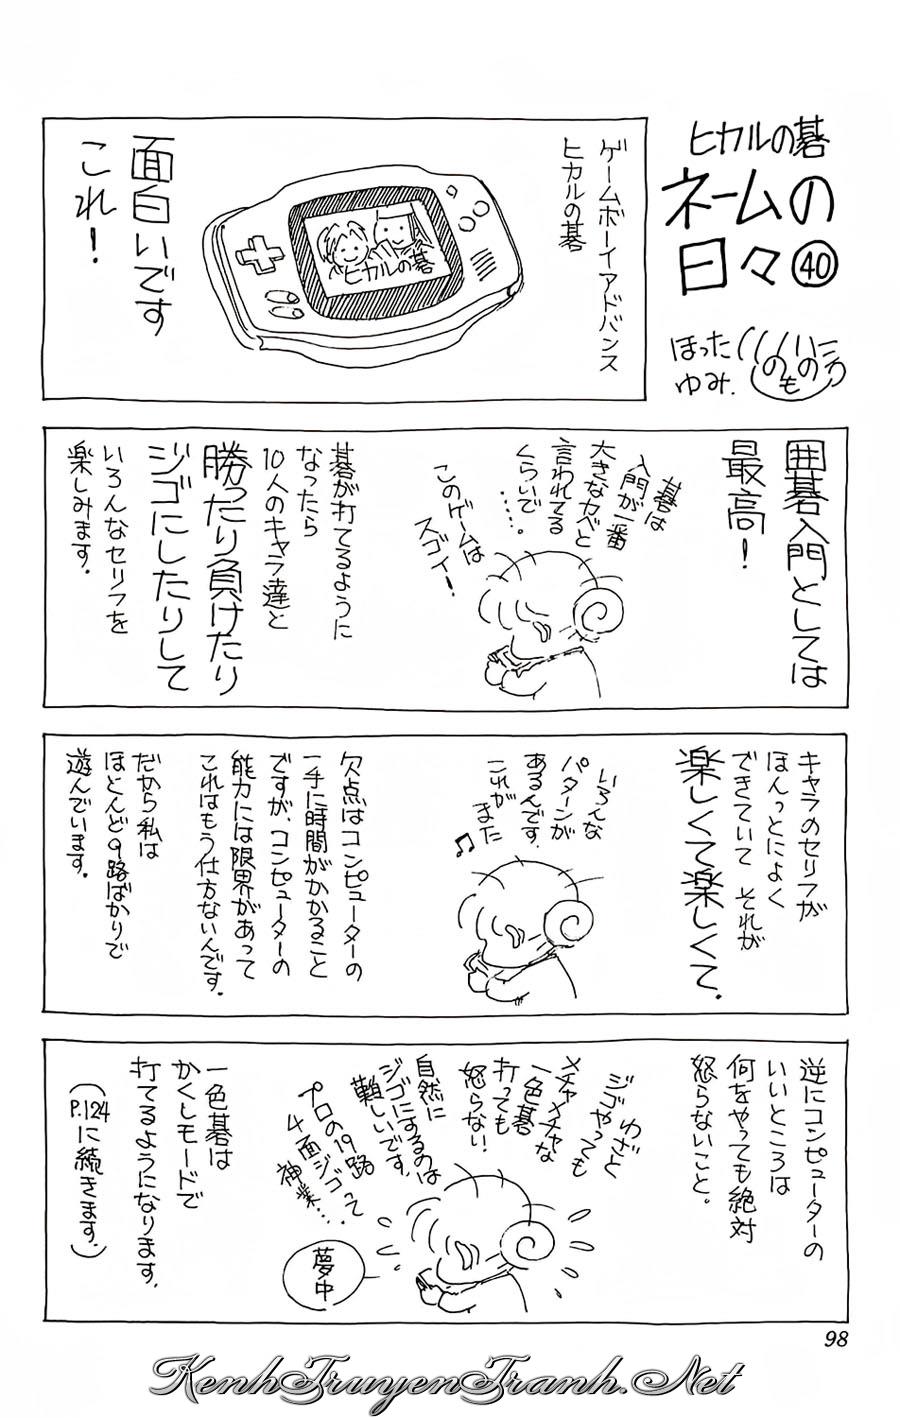 ヒカルの碁
ネームの
日々㊵
ほった
ゆみ.
ゲームボーイアドバンス
ヒカルの碁
ヒカルの碁
面白いです
これ!
囲碁入門としては
最高!
碁は
入門が一番
大きなカベと
言われてる
くらいで
・・・・。
このゲームは
スゴイ!
碁が打てるように
なったら
10人のキャラ達と
勝ったり負けたり
ジゴにしたりして
いろんなセリフを
楽しみます.
キャラのセリフが
ほんっとによく
できていて それが
楽しくて楽しくて.
いろんな
パターンが
あるんです.
これが
また
♫
欠点はコンピューターの
一手に時間がかかること
ですが、コンピューターの
能力には限界があって
これはもう仕方ないんです.
だから私は
ほとんど9路ばかりで
遊んでいます.
逆にコンピューターの
いいところは
何をやっても絶対
怒らないこと。
わざと
ジゴやっても
メチャメチャな
一色碁
打っても
怒らない!
自然に
ジゴにするのは
難しいです.
プロの19路
4面ジゴって
神業....
夢中
一色碁は
かくしモードで
打てるようになります.
(P.124に続きます.)
98
KenhTruyenTranh.Net